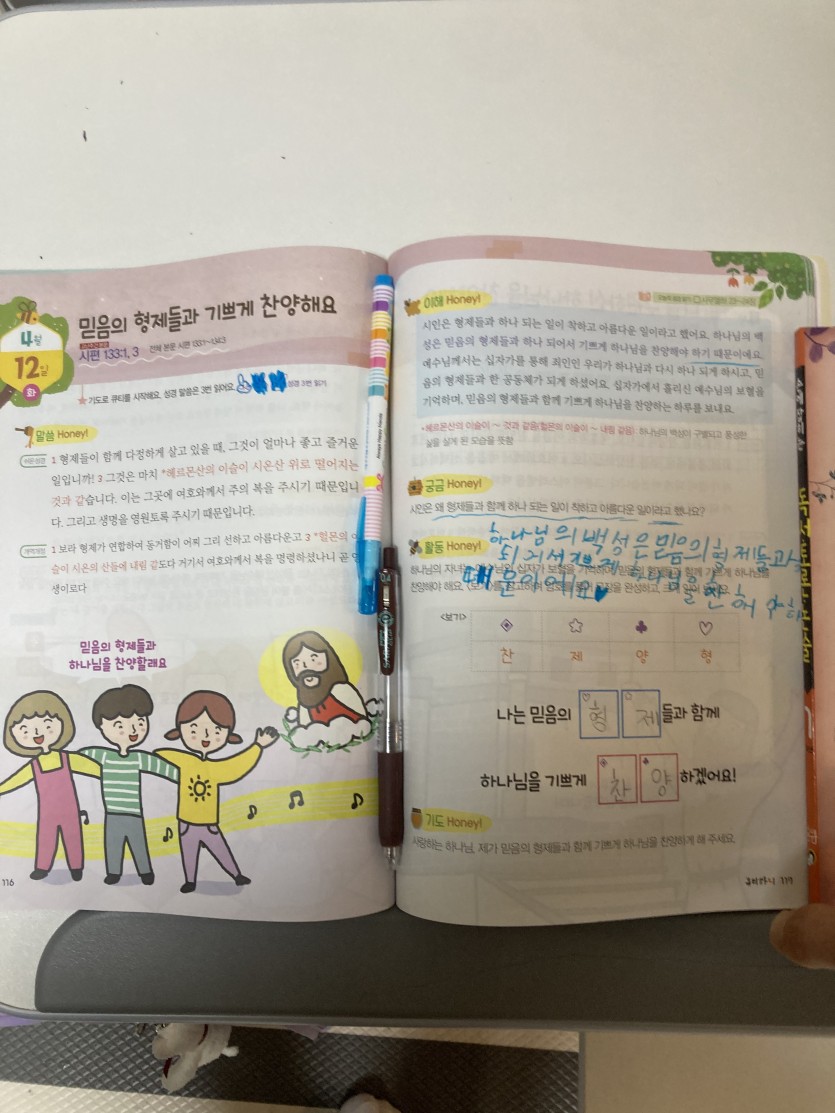 4월
12일
화
믿음의 형제들과 기쁘게 찬양해요
시편 133:1, 3 전체 본문 시편 133:1~134:3
★기도로 큐티를 시작해요. 성경 말씀은 3번 읽어요. 성경 3번 읽기
말씀 Honey!
쉬운성경 1 형제들이 함께 다정하게 살고 있을 때, 그것이 얼마나 좋고 즐거운
일입니까! 3 그것은 마치 *헤르몬산의 이슬이 시온산 위로 떨어지는
것과 같습니다. 이는 그곳에 여호와께서 주의 복을 주시기 때문입니
다. 그리고 생명을 영원토록 주시기 때문입니다.
개역개정 1 보라 형제가 연합하여 동거함이 어찌 그리 선하고 아름다운고 3 *헐몬의 이
슬이 시온의 산들에 내림 같도다 거기서 여호와께서 복을 명령하셨나니 곧 영
생이로다
믿음의 형제들과
하나님을 찬양할래요
116
이해 Honey!
시인은 형제들과 하나 되는 일이 착하고 아름다운 일이라고 했어요. 하나님의 백
성은 믿음의 형제들과 하나 되어서 기쁘게 하나님을 찬양해야 하기 때문이에요.
예수님께서는 십자가를 통해 죄인인 우리가 하나님과 다시 하나 되게 하시고, 믿
음의 형제들과 한 공동체가 되게 하셨어요. 십자가에서 흘리신 예수님의 보혈을
기억하며, 믿음의 형제들과 함께 기쁘게 하나님을 찬양하는 하루를 보내요.
*헤르몬산의 이슬이 ~ 것과 같음(헐몬의 이슬이 ~ 내림 같음) 하나님의 백성이 구별되고 풍성한
삶을 살게 된 모습을 뜻함
궁금 Honey!
시인은 왜 형제들과 함께 하나 되는 일이 착하고 아름다운 일이라고 했나요?
하나님의 백성은 믿음의 형제들과
되어서 기쁘게 하나님을 찬 해야 하
때문이에요♥
활동 Honey!
하나님의 자녀는 예수님의 십자가 보혈을 기억하며 믿음의 형제들과 함께 기쁘게 하나님을
찬양해야 해요.
<보기>
찬 제 양 형
나는 믿음의 형 제 들과 함께
하나님을 기쁘게 찬 양 하겠어요!
기도 Honey!
사랑하는 하나님, 제가 믿음의 형제들과 함께 기쁘게 하나님을 찬양하게 해 주세요.
117
0.4